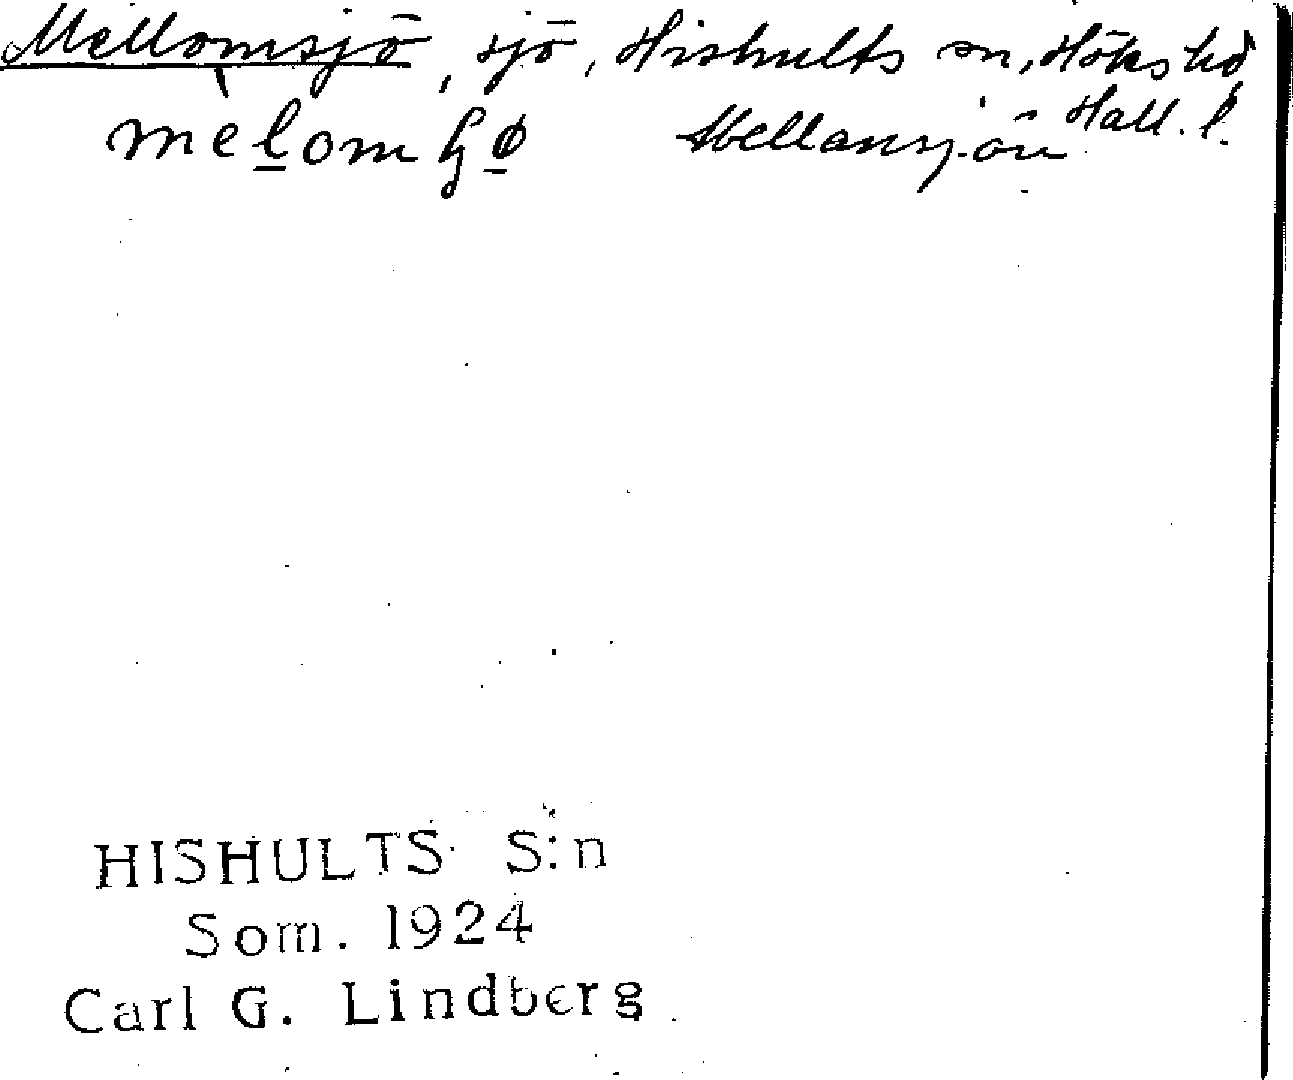 Mellomsjö, sjö, Hishults sn, Höks hd
Hall. l.
mèlomɧø Mellansjön
HISHULTS S:n
Som. 1924
Carl G. Lindberg